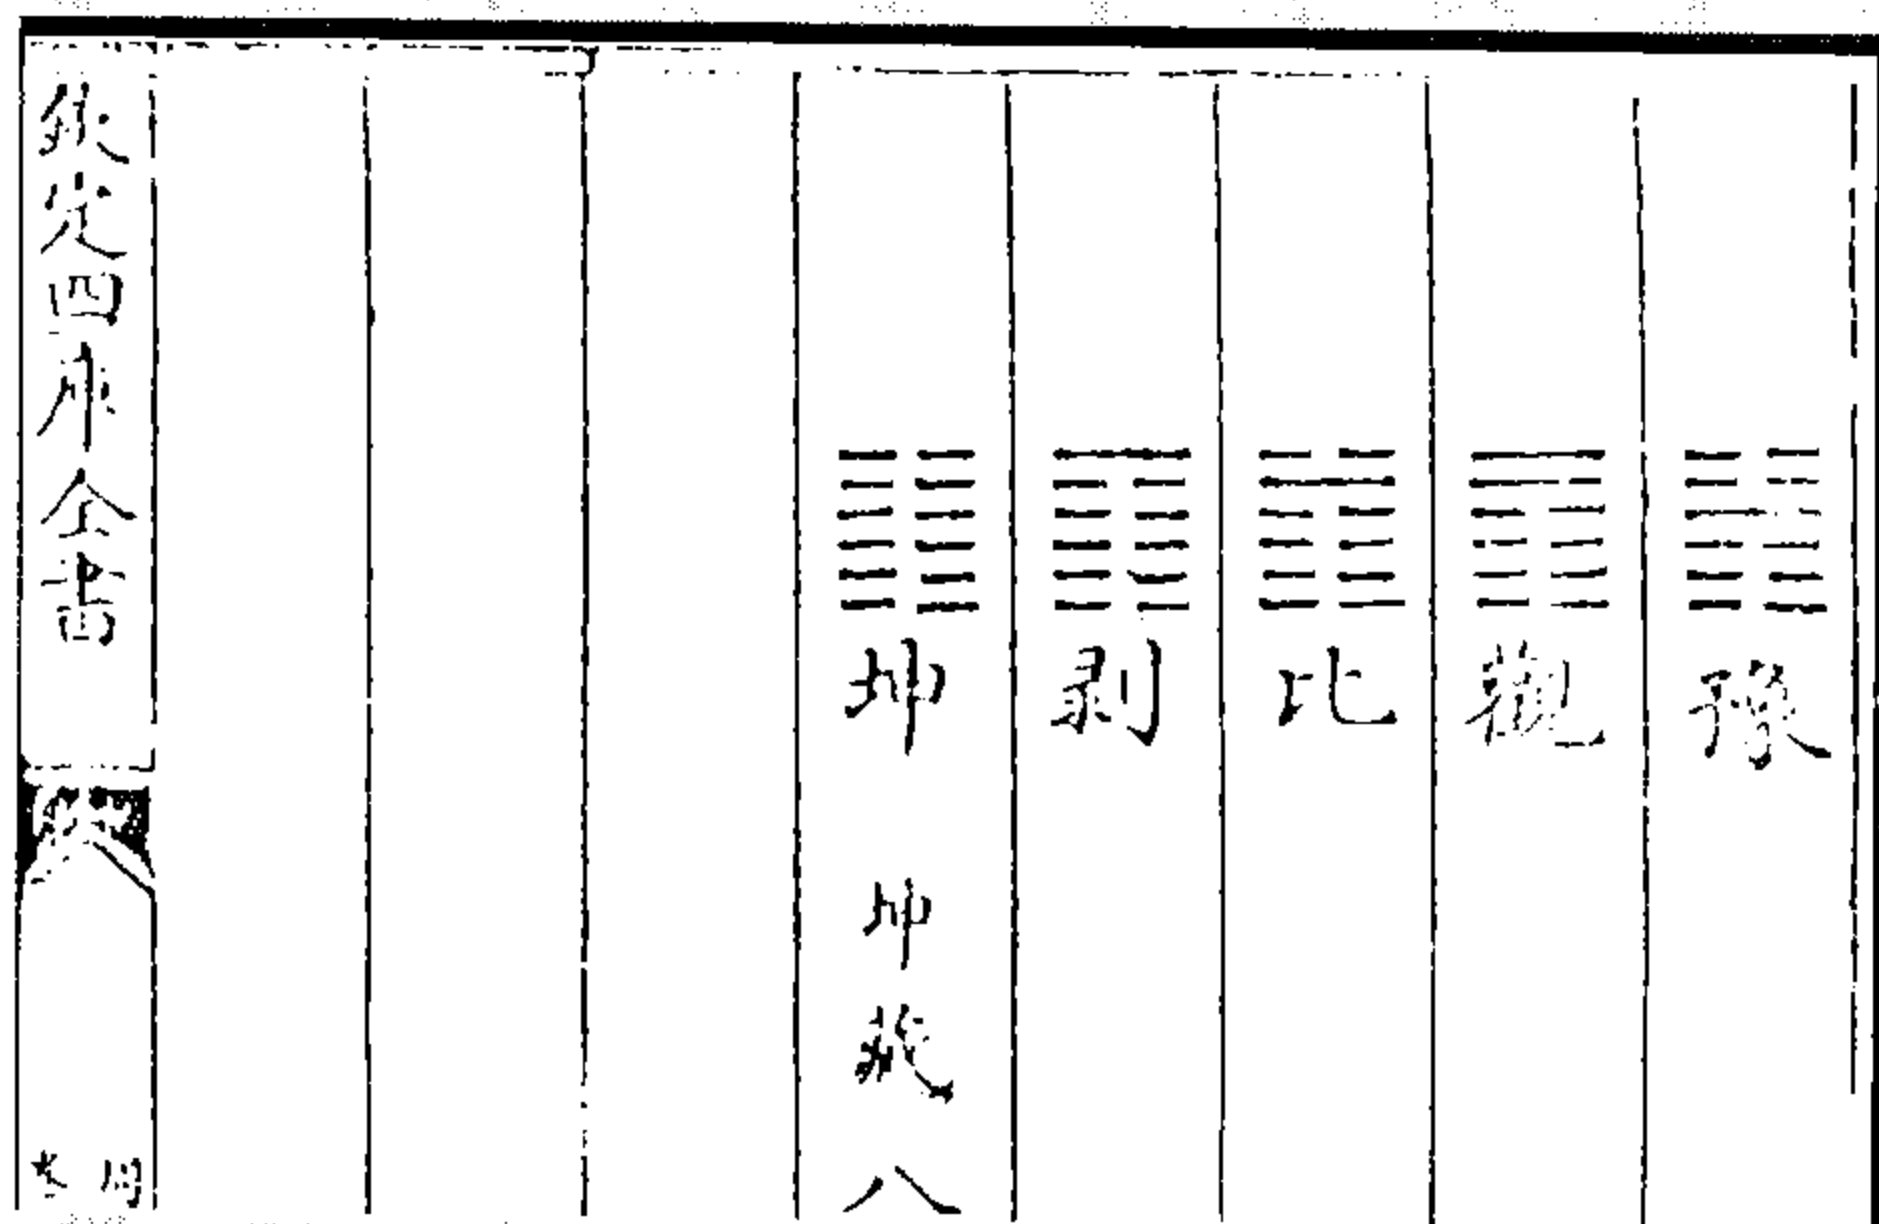 豫
觀
比
剥
坤 坤藏八
欽定四庫全書
周